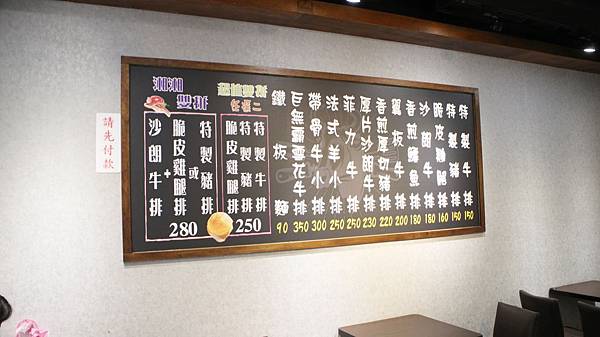 請先付款
湘湘
雙拼
沙朗牛排
+
脆皮雞腿排
或
特製豬排
280
超值雙拼
任選二
脆皮雞腿排
特製豬排
特製牛排
250
鐵板麵 90
巨無霸雪花牛排 350
帶骨牛小排 300
法式羊小排 250
菲力牛排 250
厚片沙朗牛排 230
香煎厚切豬排 220
翼板牛排 200
香煎鱈魚排 180
沙朗牛排 180
脆皮雞腿排 160
特製牛排 150
特製豬排 150